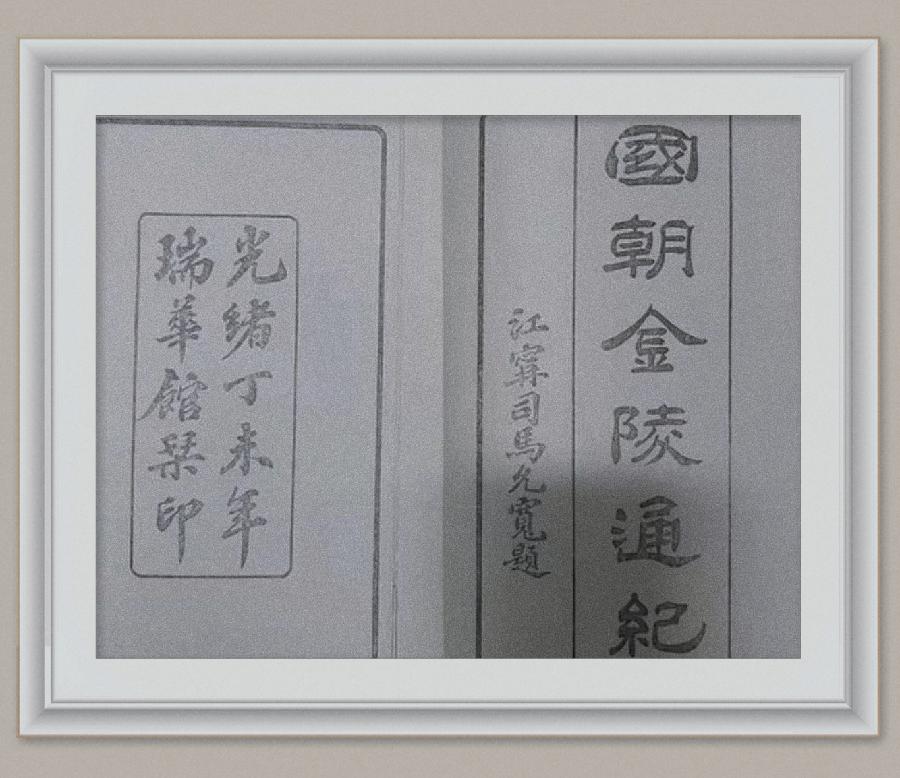 國朝金陵通紀
江寧司馬允寬題
光緒丁未年
瑞華館栞印